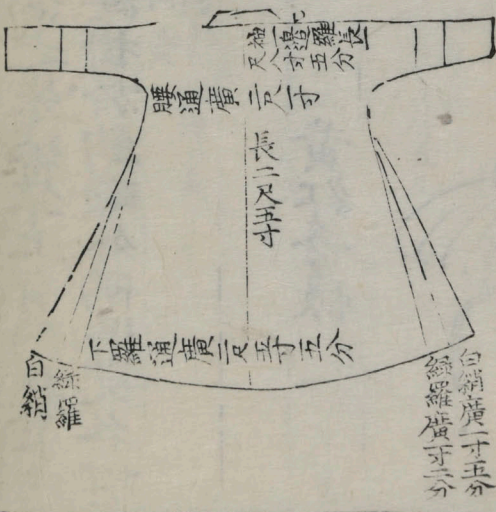 袖一邊羅長一
尺八寸五分
腰通廣一尺一寸
長二尺五寸
下羅通廣二尺五寸五分
白綃廣一寸五分
綠羅廣一寸二分
綠羅
白綃